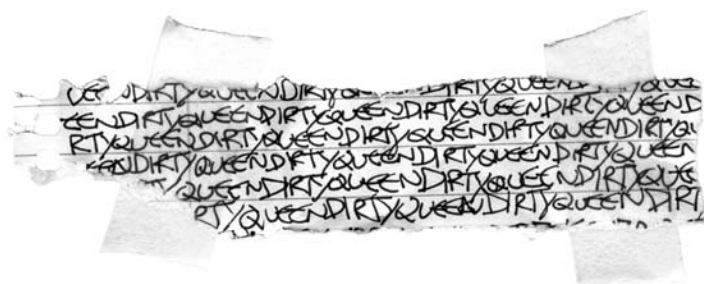 UEE NDIRTYQUEENDIRTYQU NDIRTYQUEEND TYQUEE
EENDIRTYQUEENDIRTYQUEENDIRTYQUEENDIRTYQUEEND
RTYQUEENDIRTYQUEENDIRTYQUEENDIRTYQUEENDIRTYQU
EENDIRTYQUEENDIRTYQUEENDIRTYQUEENDIRTYQUEEN
TYQUEENDIRTYQUEENDIRTYQUEENDIRTYQUE
RTYQUEENDIRTYQUEENDIRTYQUEENDIRT